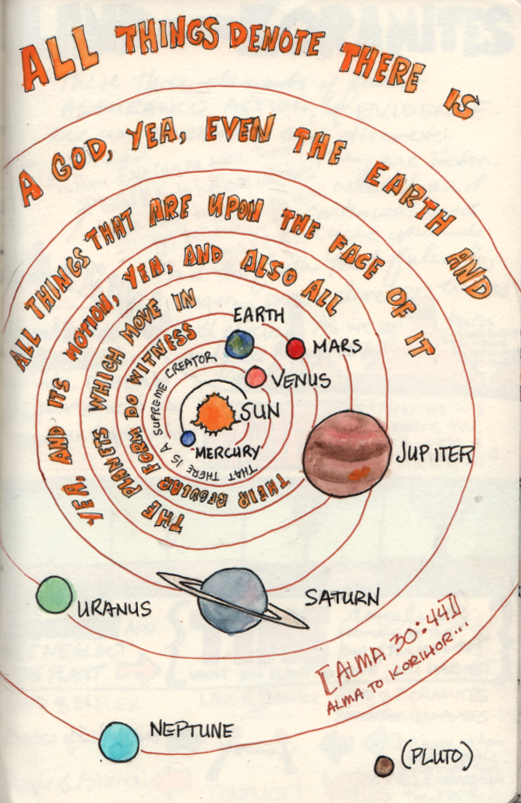 ALL THINGS DENOTE THERE IS
A GOD, YEA, EVEN THE EARTH AND
ALL THINGS THAT ARE UPON THE FACE OF IT
YEA, AND ITS MOTION, YEA, AND ALSO ALL
THE PLANETS WHICH MOVE IN
THEIR REGULAR FORM DO WITNESS
THAT THERE IS A SUPREME CREATOR
EARTH
MARS
VENUS
SUN
MERCURY
JUPITER
SATURN
URANUS
[ALMA 30:44]
ALMA TO KORIHOR...
NEPTUNE
(PLUTO)